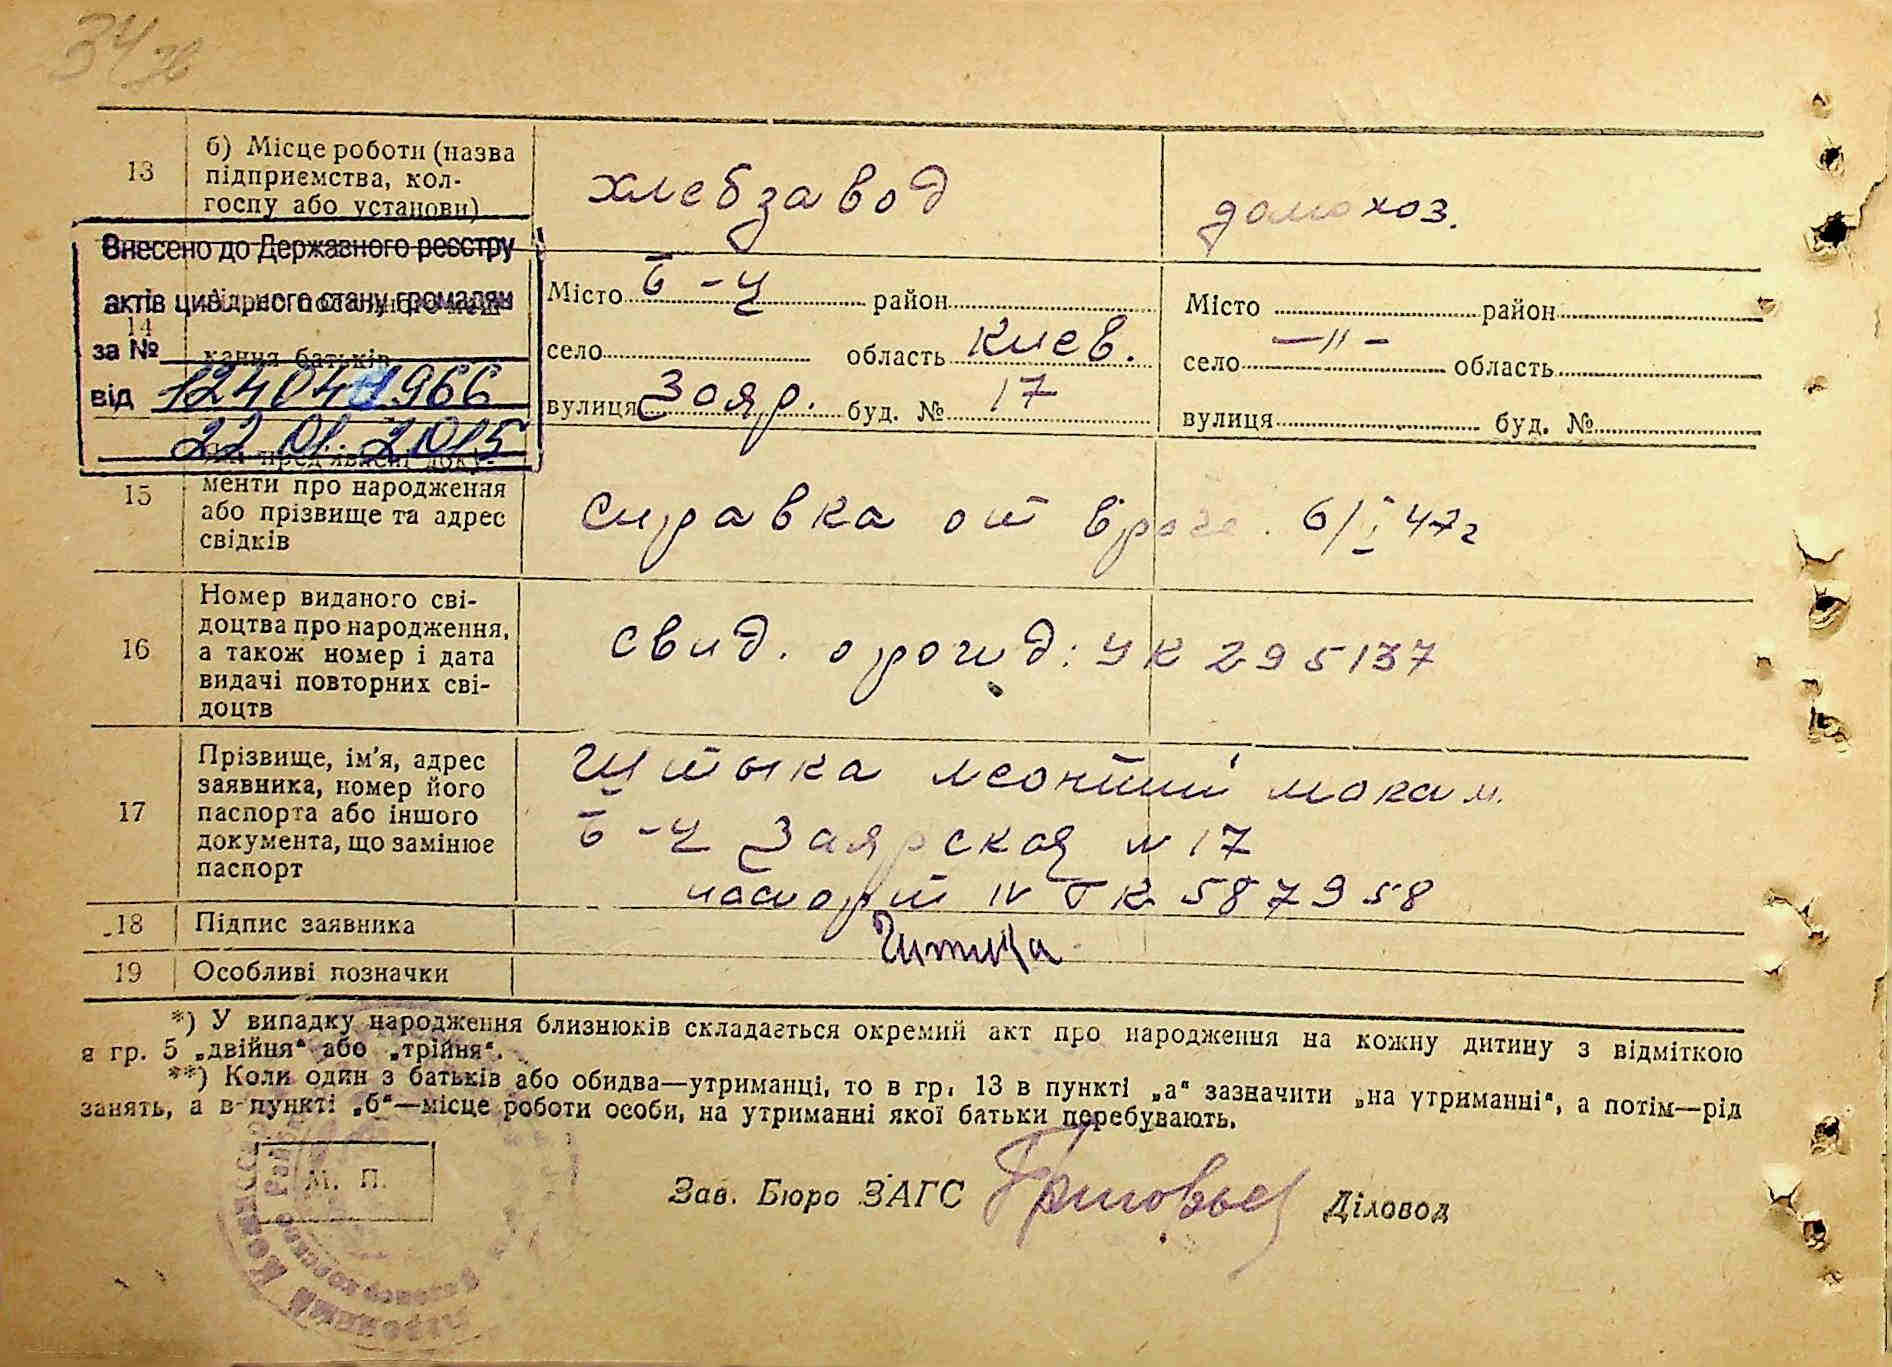 34 зв
13
б) Місце роботи (назва
підприємства, кол-
госпу або установи)
хлебзавод
домохоз.
Внесено до Державного реєстру
актів цивільного стану громадян
за №
від 12404 1966
22.01.2015
14
кання батьків
Місто Б-Ц район
село область Киев.
вулиця Заяр. буд. № 17
Місто район
село —"— область
вулиця буд. №
15
менти про народження
або прізвище та адрес
свідків
справка от врача. 6/I 47г
16
Номер виданого сві-
доцтва про народження,
а також номер і дата
видачі повторних сві-
доцтв
свид. о рожд: УК 295137
17
Прізвище, ім'я, адрес
заявника, номер його
паспорта або іншого
документа, що замінює
паспорт
Леонтий
Б-Ц Заярская № 17
паспорт IV ТК 587958
18
Підпис заявника
19
Особливі позначки
*) У випадку народження близнюків складається окремий акт про народження на кожну дитину з відміткою
в гр. 5 „двійня“ або „трійня“.
**) Коли один з батьків або обидва—утриманці, то в гр. 13 в пункті „а“ зазначити „на утриманні“, а потім—рід
занять, а в пункті „б“—місце роботи особи, на утриманні якої батьки перебувають.
М. П.
Зав. Бюро ЗАГС
Діловод